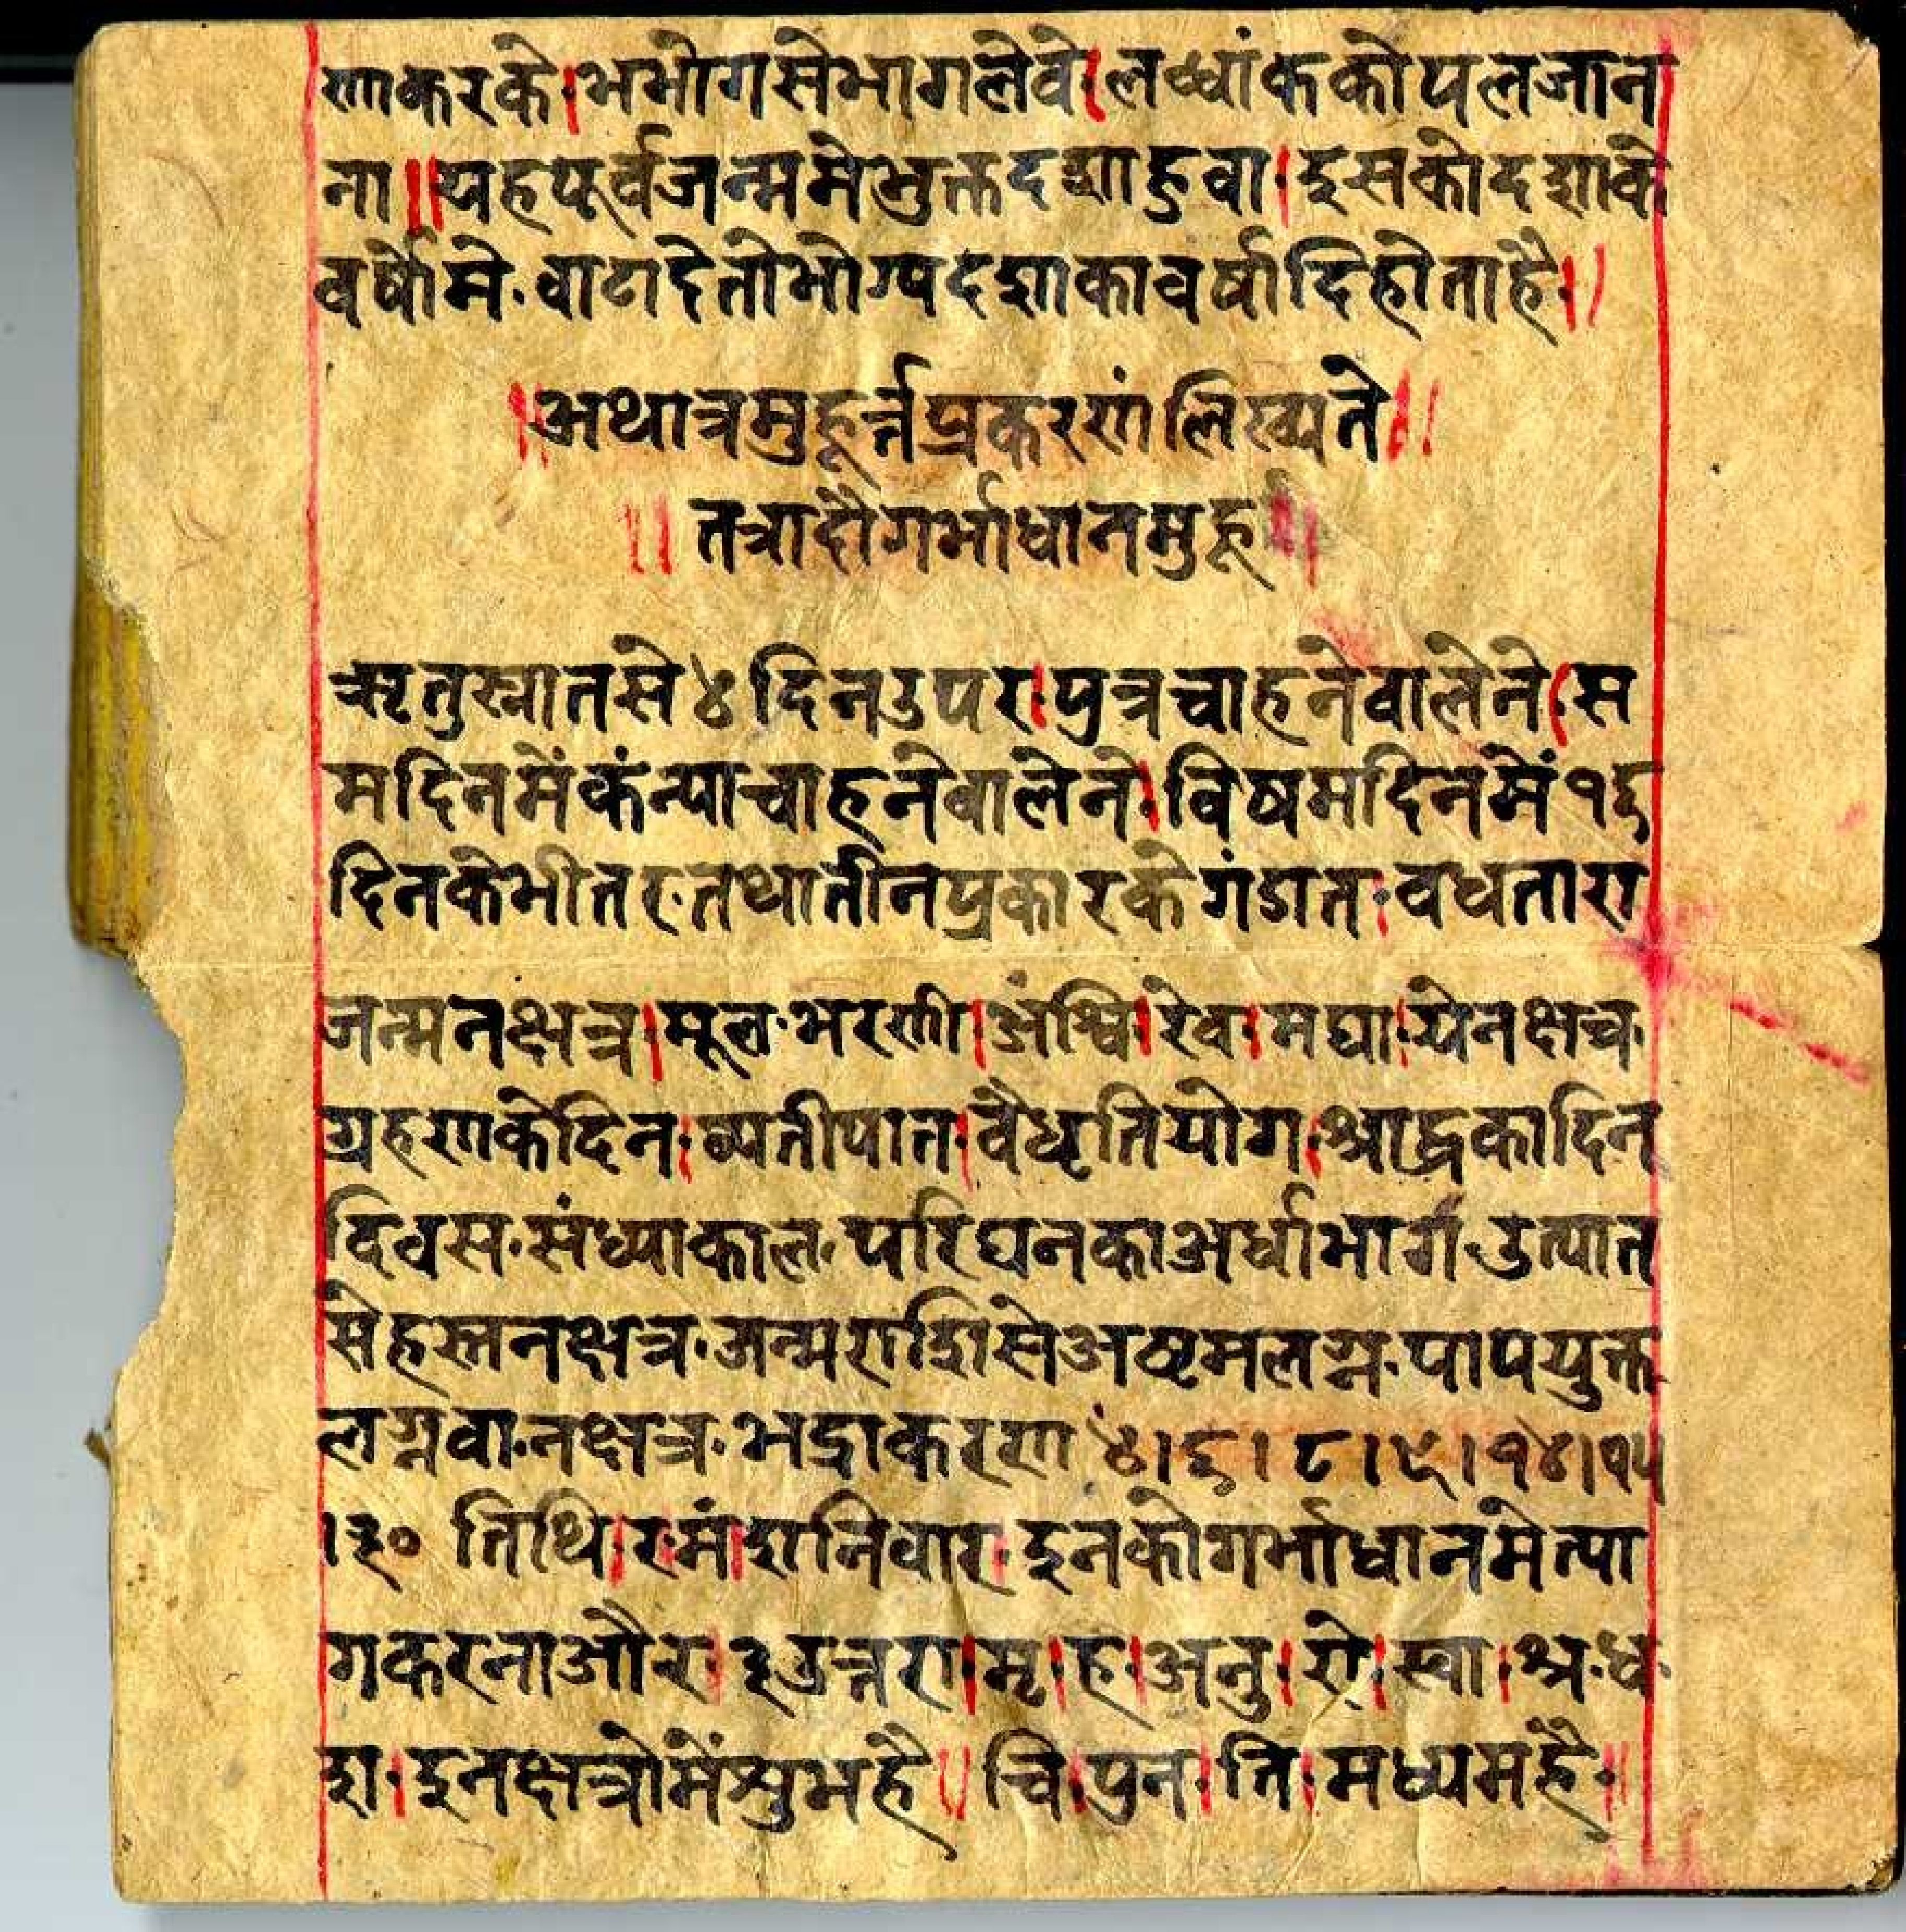 णाकरके।भभोगसेभागलेवे।लब्धांककोपलजान
ना॥यहपूर्वजन्ममेभुक्तदशाहुवा।इसकोदशाके
वर्षोमे·वाटादेतोभोग्यदशाकावर्षादिहोताहै॥
॥अथात्रमुहूर्त्तप्रकरणंलिख्यते॥
॥तत्रादौगर्भाधानमुहू॥
ऋतुस्नातसे४दिनउपर।पुत्रचाहनेवालेने।स
मदिनमेंकंन्याचाहनेवालेने।विषमदिनमें१६
दिनकेभीतर·तथातीनप्रकारकेगंडात·वधतारा
जन्मनक्षत्र।मूल·भरणी।अंश्वि।रेव।मघा।येनक्षत्र·
ग्रहणकेदिन।व्यतीपात।वैधृतियोग।श्राद्धकादिन
दिवस·संध्याकाल·परिघनकाअर्धाभाग·उत्पात
सेहस्तनक्षत्र·जन्मराशिसेअष्टमलग्न·पापयुक्त
लग्नवा·नक्षत्र·भद्राकरण ४।६।८।९।१४।१५
।३० तिथि।र·मं।शनिवार·इनकोगर्भाधानमेत्या
गकरनाऔर।३उत्तरा।मृ।ह।अनु।रो।स्वा।श्र·ध·
श।इनक्षत्रोमेंसुभहै॥चि।पुन।ति।मध्यमहै॥